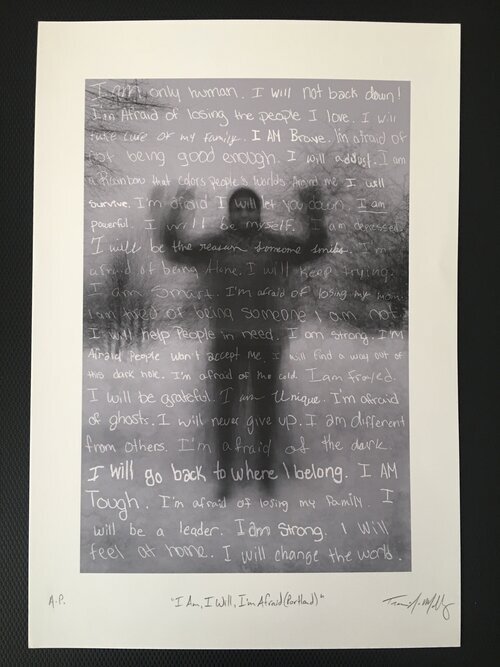 I am only human. I will not back down!
I'm Afraid of losing the people I love. I will
take care of my family. I AM Brave. I'm afraid of
not being good enough. I will adjust. I am
a Rainbow that colors people's worlds. Around me I will
survive. I'm afraid I will let you down. I am
powerful. I will be myself. I am depressed.
I will be the reason someone smiles. I'm
afraid of being Alone. I will keep trying.
I am Smart. I'm afraid of losing my mom.
I am tired of being someone I am not
I will help People in need. I am strong. I'M
Afraid People won't accept me. I will find a way out of
this dark hole. I'm afraid of the cold. I am
I will be grateful. I am Unique. I'm afraid
of ghosts. I will never give up. I am different
from others. I'm afraid of the dark.
I will go back to where I belong. I AM
Tough. I'm afraid of losing my family. I
will be a leader. I am Strong. I will
feel at home. I will change the world.
A.P. "I Am, I Will, I'm Afraid (Portland)"